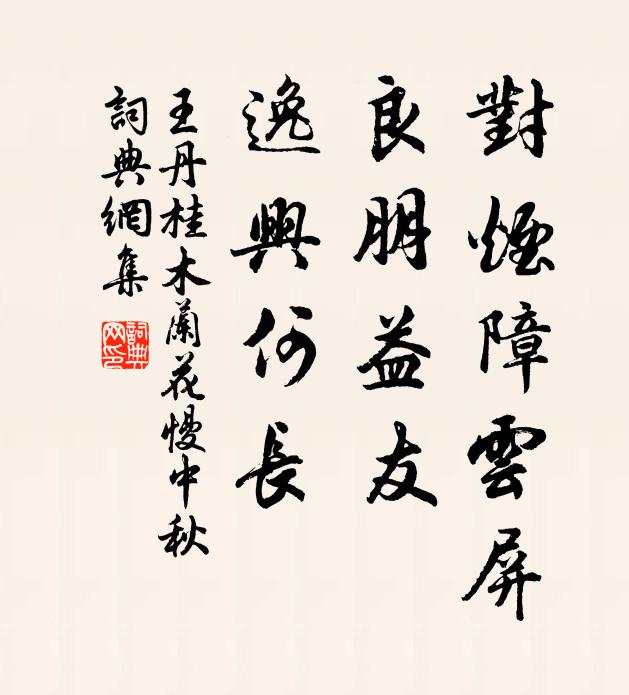 對煙障雲屏
良朋益友
逸興何長
王丹桂木蘭花慢中秋
詞典網集
詞典
网印